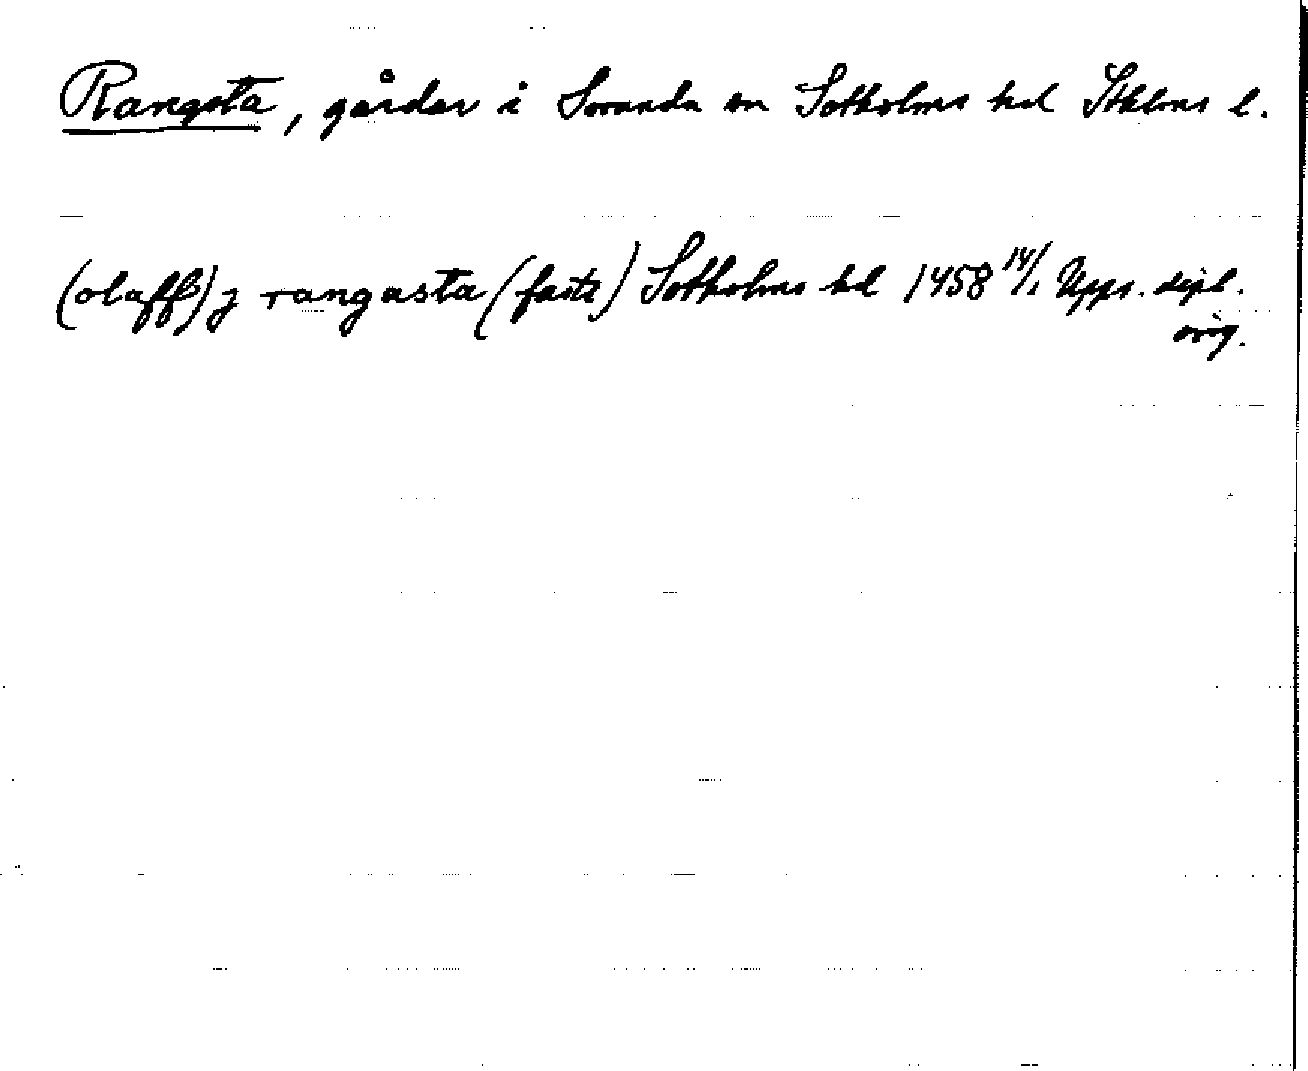 Rangsta, gårdar i Sorunda sn Sotholms hd Sthlms l.
(olaff) j rangasta (faste) Sotholms hd 1458 14/1 Upps. dipl.
orig.